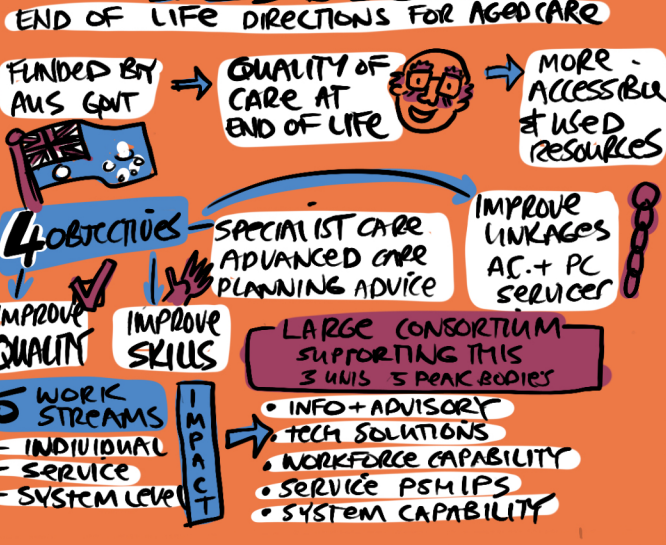 END OF LIFE DIRECTIONS FOR AGED CARE
FUNDED BY
AUS GOVT
QUALITY OF
CARE AT
END OF LIFE
MORE
ACCESSIBLE
& USED
RESOURCES
4 OBJECTIVES
SPECIALIST CARE
ADVANCED CARE
PLANNING ADVICE
IMPROVE
LINKAGES
AC. + PC
SERVICES
IMPROVE
QUALITY
IMPROVE
SKILLS
LARGE CONSORTIUM
SUPPORTING THIS
3 UNIS 5 PEAK BODIES
5 WORK
STREAMS
- INDIVIDUAL
- SERVICE
- SYSTEM LEVEL
IMPACT
• INFO + ADVISORY
• TECH SOLUTIONS
• WORKFORCE CAPABILITY
• SERVICE PSHIPS
• SYSTEM CAPABILITY